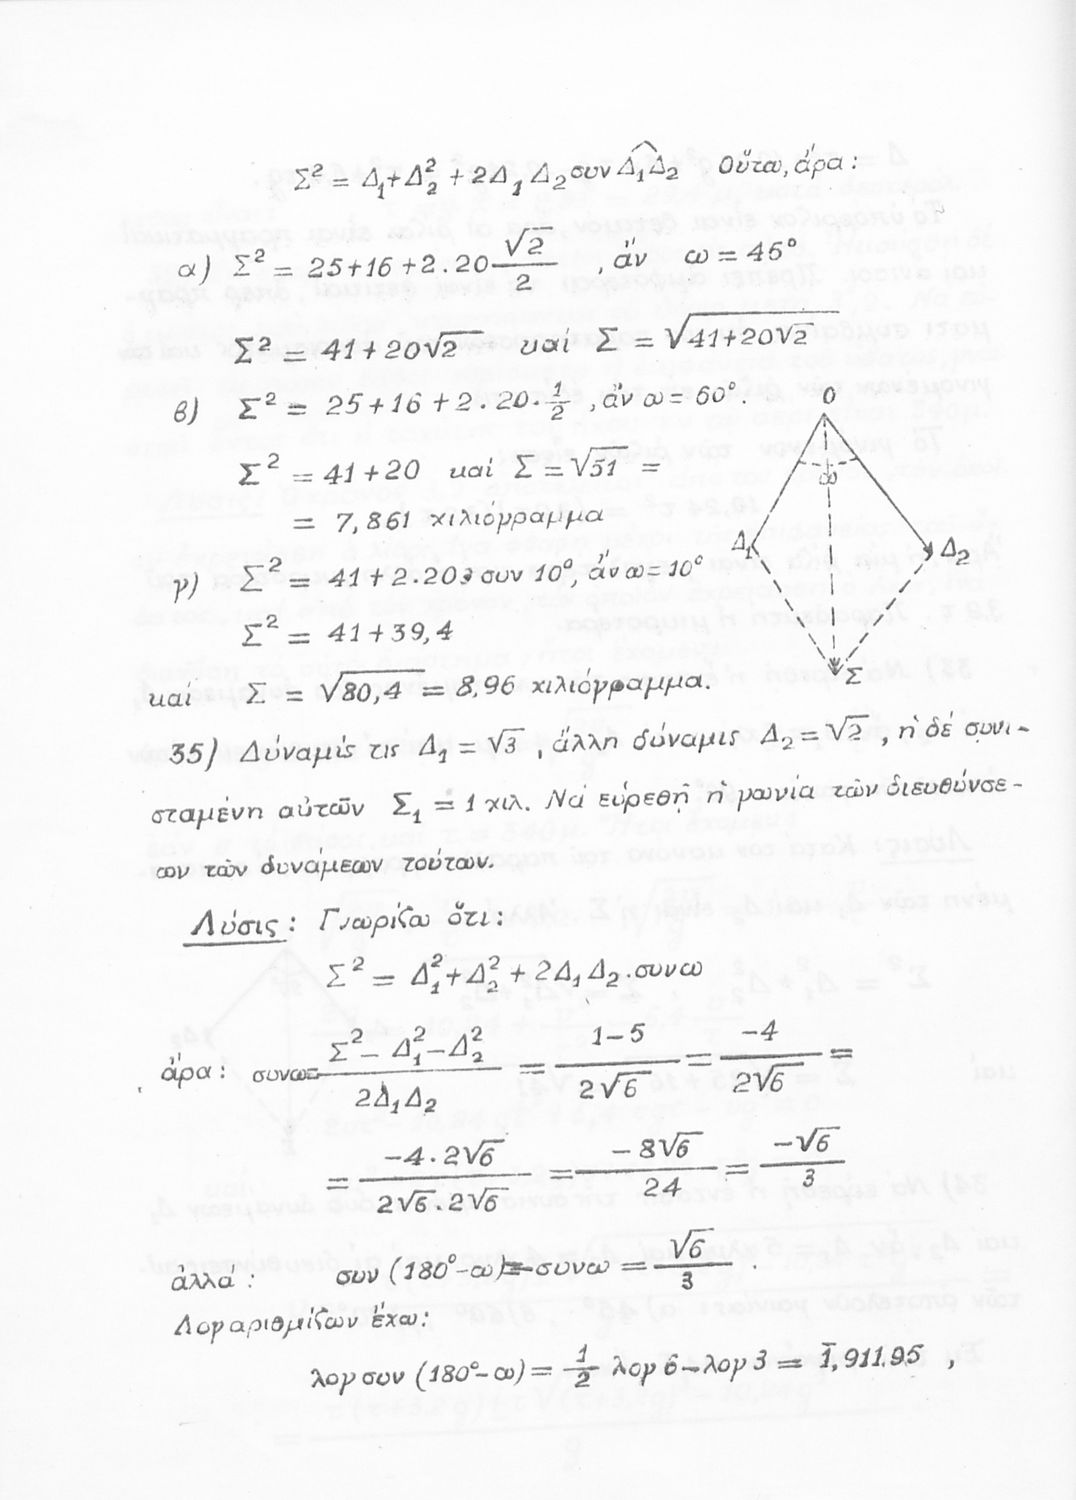 Σ² = Δ₁+Δ₂² + 2Δ₁ Δ₂ συν Δ₁Δ₂ Οὕτω, ἄρα :
α) Σ² = 25+16 +2.20 √2/2 , ἄν ω = 45°
Σ² = 41+20√2 καί Σ = √(41+20√2)
β) Σ² = 25+16+2.20.1/2 , ἄν ω = 60°.
Σ² = 41+20 καί Σ = √51 =
= 7,861 χιλιόγραμμα
γ) Σ² = 41+2.20 συν 10°, ἄν ω = 10°
Σ² = 41+39,4
καί Σ = √80,4 = 8,96 χιλιόγραμμα.
Ο
ω
Δ₁ Δ₂
Σ
35) Δύναμις τις Δ₁ = √3 , ἄλλη δύναμις Δ₂ = √2 , ἡ δέ συνι-
σταμένη αὐτῶν Σ₁ = 1 χιλ. Νά εὑρεθῇ ἡ γωνία τῶν διευθύνσε-
ων τῶν δυνάμεων τούτων.
Λύσις : Γνωρίζω ὅτι :
Σ² = Δ₁²+Δ₂² + 2Δ₁ Δ₂.συνω
ἄρα : συνω = (Σ² - Δ₁² - Δ₂²)/(2Δ₁Δ₂) = (1-5)/(2√6) = -4/(2√6) =
= (-4.2√6)/(2√6.2√6) = -8√6/24 = -√6/3
ἀλλά : συν (180°-ω) = -συνω = √6/3 .
Λογαριθμίζων ἔχω :
λογ συν (180°-ω) = 1/2 λογ 6 - λογ 3 = 1̄,911.95 ,